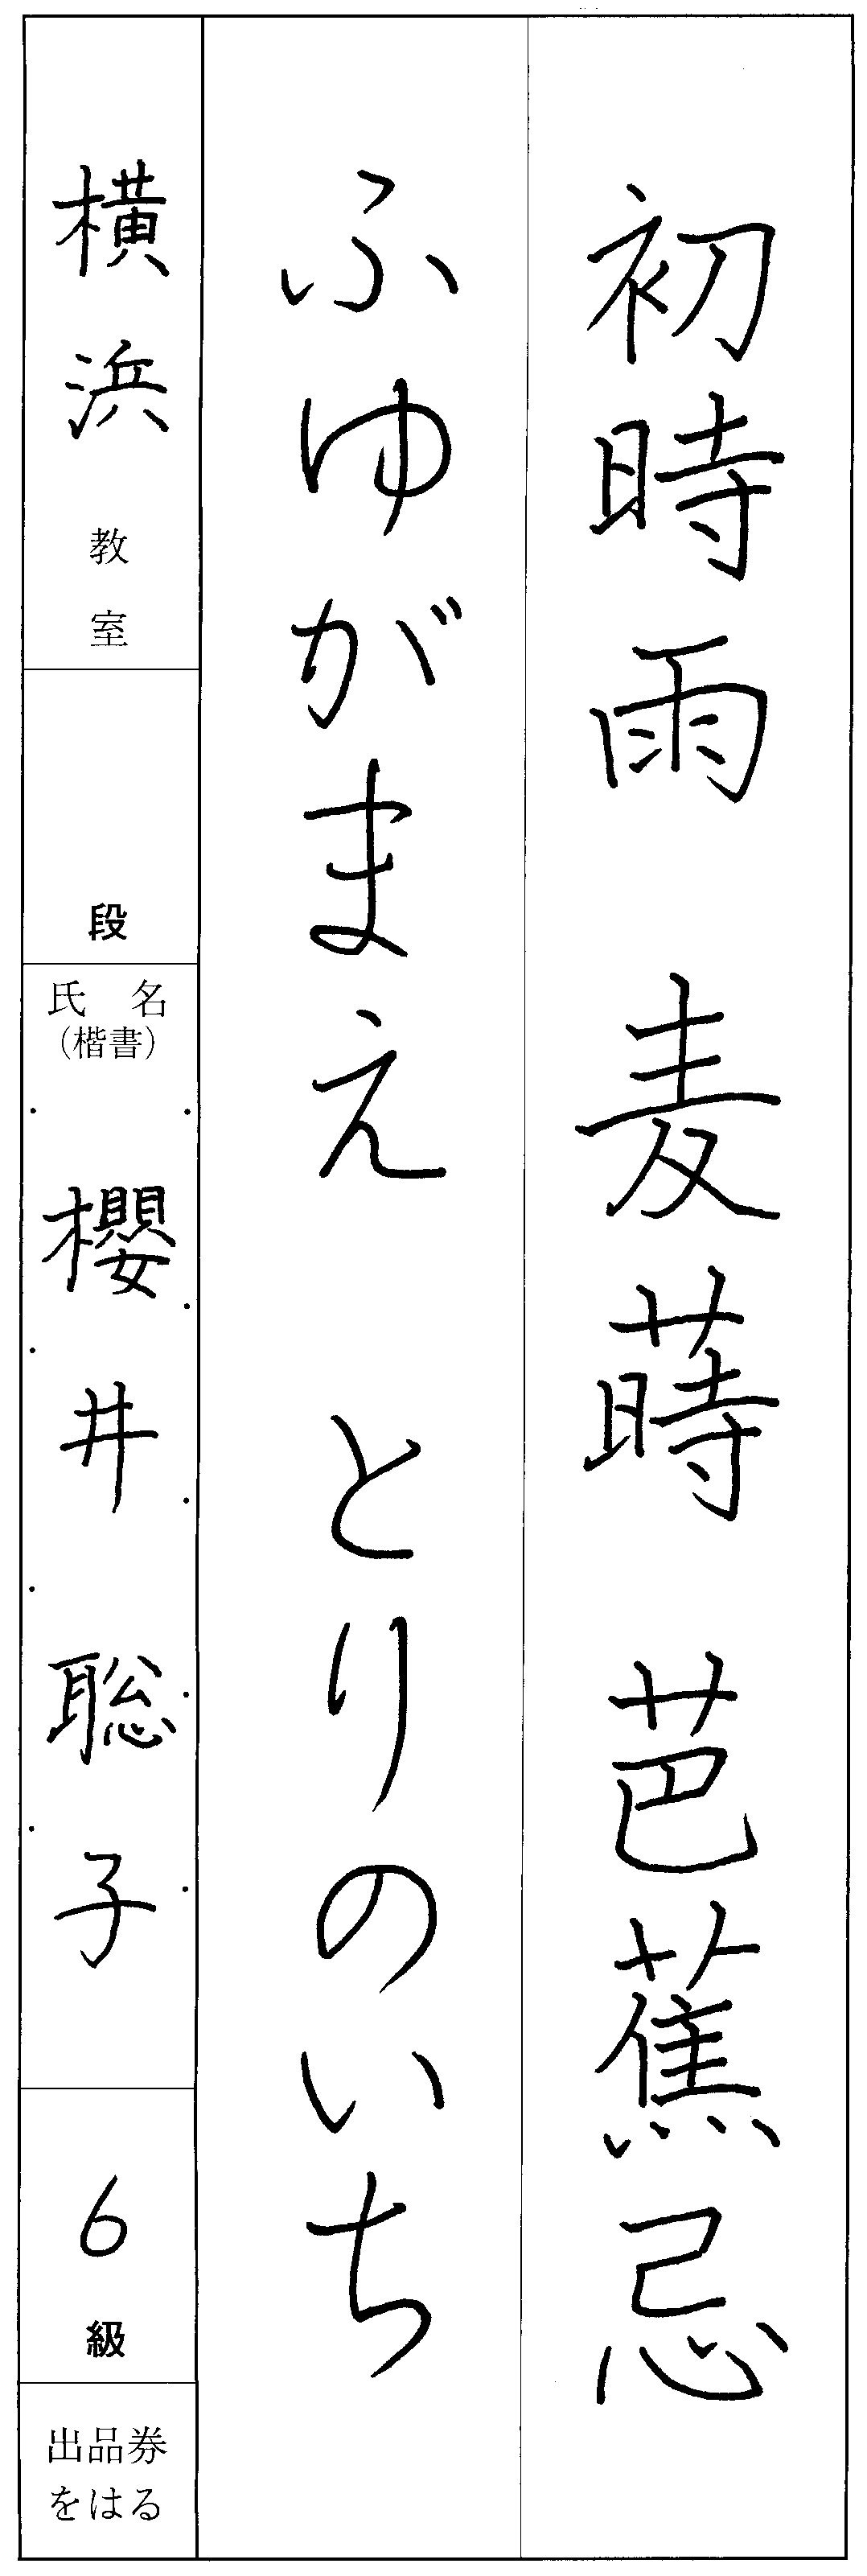 初時雨　麦蒔　芭蕉忌
ふゆがまえ　とりのいち
横浜教室
段
氏　名
（楷書）
櫻井聡子
6級
出品券
をはる